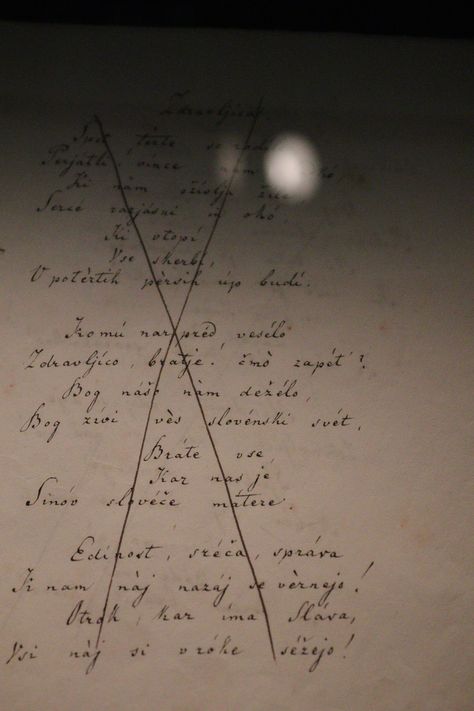 Zdravljica
Spet terte so rodi
Perjatli, vince nam
Ki nam oživlja žile
Sercé razjásni in okó,
Ki vtopí
Vse skerbi,
V potèrtih pèrsih úp budí.
Komú narpréd vesélo
Zdravljíco, bratje! čmò zapét'?
Bog našo nàm deželo,
Bog živi vès slovénski svét,
Bráte vse,
Kar nas je,
Sinóv slovéče mátere.
Edínost, sréča, správa
K nam nàj nazáj se vèrnejo!
Otrók, kar íma Sláva,
Vsi nàj si v róke séžejo!